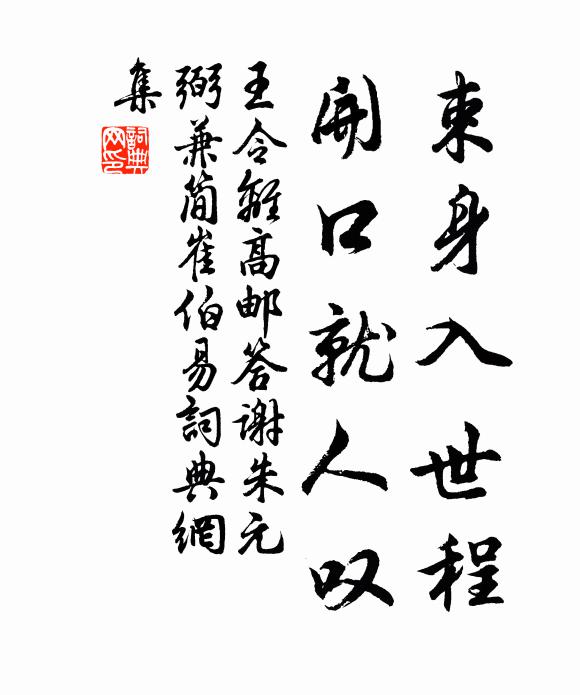 束身入世程
開口就人叹
王令離高邮答谢朱元
弼兼简崔伯易詞典網
集
詞典
网印